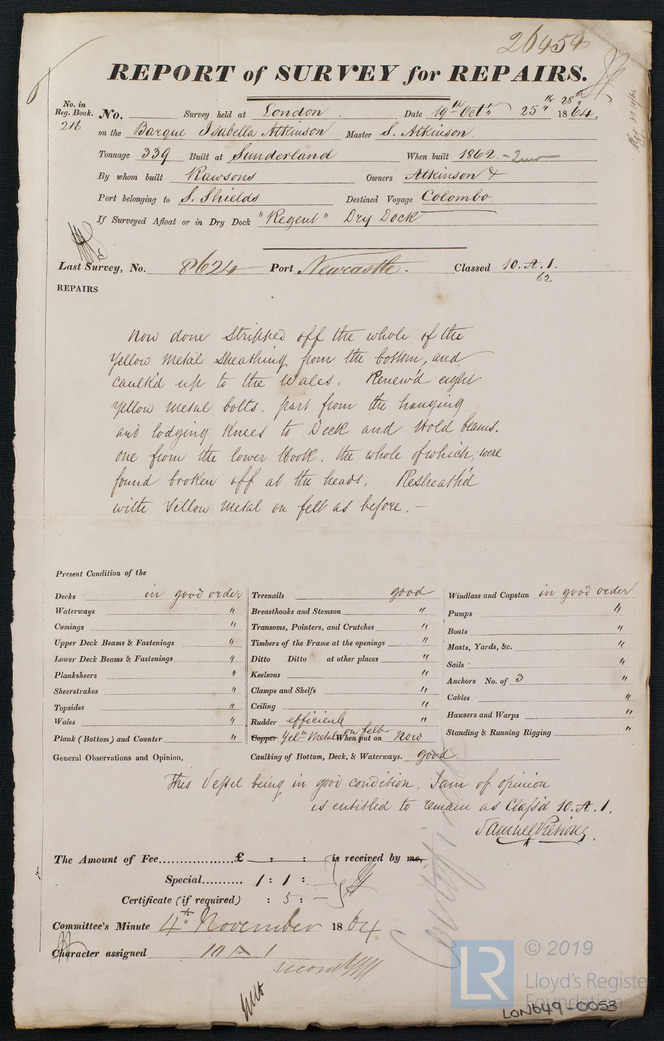 26454
REPORT of SURVEY for REPAIRS.
No. in Reg. Book. 216
No. Survey held at London Date 19th Octr 25th 28th 1864.
on the Barque Isabella Atkinson Master S. Atkinson
Tonnage 339 Built at Sunderland When built 1862 -
By whom built Rawsons Owners Atkinson &
Port belonging to S. Shields Destined Voyage Colombo
If Surveyed Afloat or in Dry Dock "Regent" Dry Dock
Last Survey, No. 8624 Port Newcastle. Classed 10. A. 1.
62
REPAIRS
Now done Stripped off the whole of the
Yellow Metal Sheathing from the bottom, and
caulk'd up to the Wales. Renew'd eight
Yellow Metal bolts. part from the hanging
and lodging Knees to Deck and Hold beams.
one from the lower Hook. the whole of which, were
found broken off at the heads. Resheath'd
with Yellow Metal on felt as before. -
Present Condition of the
Decks in good order
Waterways "
Comings "
Upper Deck Beams & Fastenings "
Lower Deck Beams & Fastenings "
Planksheers "
Sheerstrakes "
Topsides "
Wales "
Plank (Bottom) and Counter "
Treenails good
Breasthooks and Stemson "
Transoms, Pointers, and Crutches "
Timbers of the Frame at the openings "
Ditto Ditto at other places "
Keelsons "
Clamps and Shelfs "
Ceiling "
Rudder efficient "
Copper Yelw Metal on felt When put on Now
Caulking of Bottom, Deck, & Waterways. good
Windlass and Capstan in good order
Pumps "
Boats "
Masts, Yards, &c. "
Sails "
Anchors No. of 3 "
Cables "
Hawsers and Warps "
Standing & Running Rigging "
General Observations and Opinion,
This Vessel being in good condition. I am of opinion
is entitled to remain as Class'd 10. A. 1.
Samuel
The Amount of Fee............... £ : : is received by me,
Special.......... 1 : 1 : -
Certificate (if required) : 5 : -
Committee's Minute 4th November 1864
Character assigned 10 A 1
LR
© 2019
Lloyd's Register
Foundation
LON649-0053